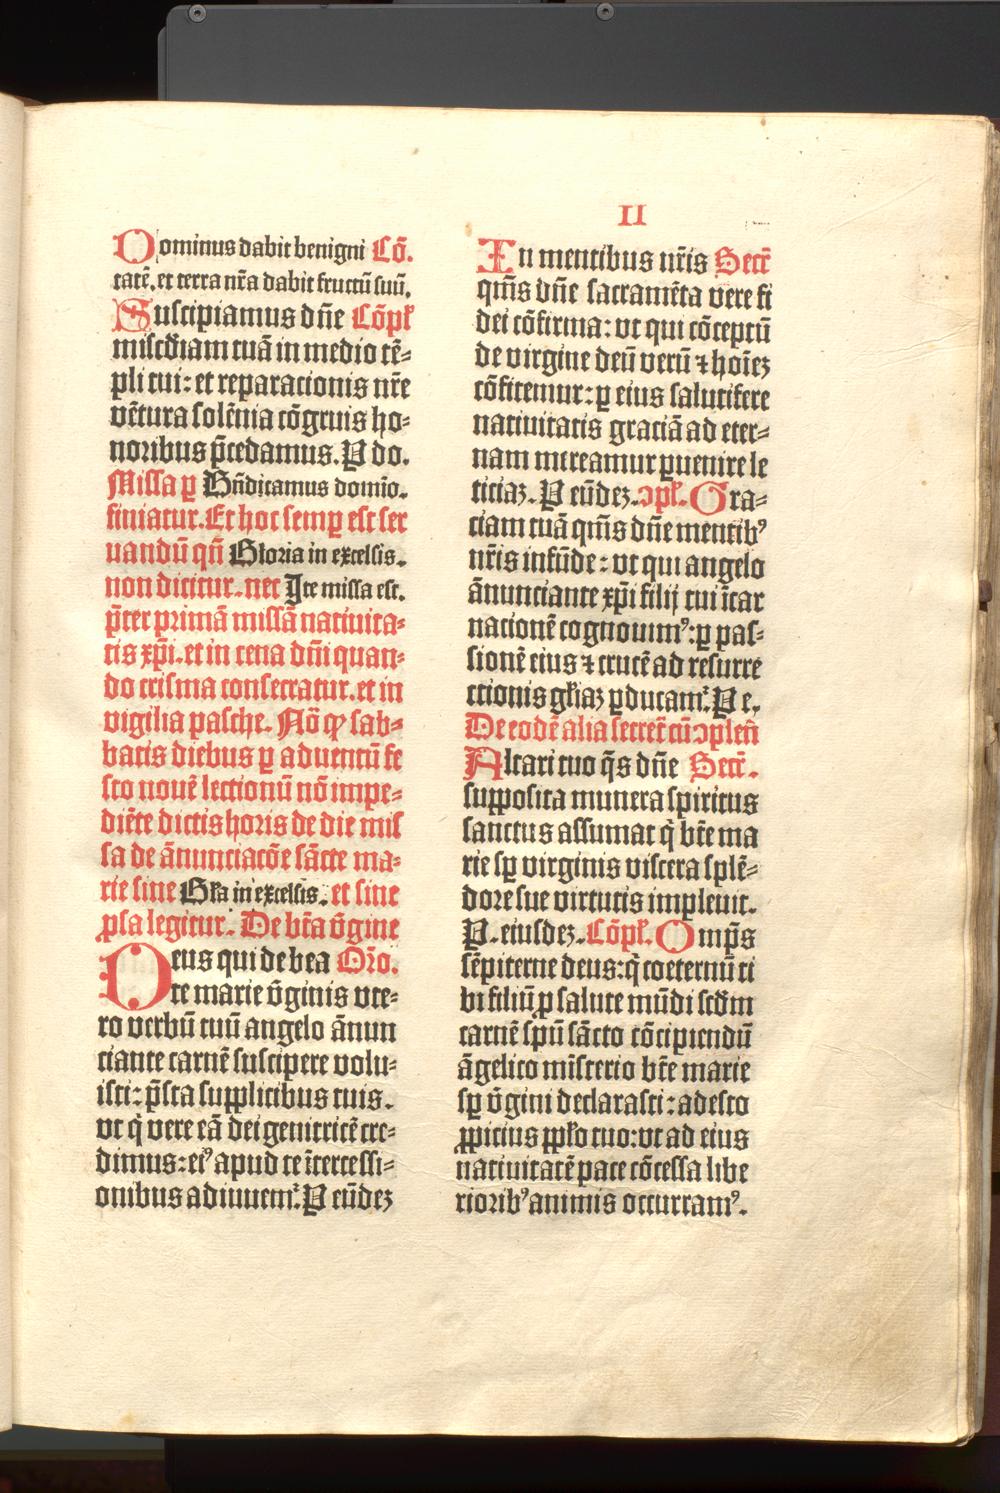 II
Dominus dabit benigni Cō.
tatē. et terra nr̄a dabit fructū suū.
Suscipiamus dn̄e Cōpl̄
misc̄diam tuā in medio tē-
pli tui: et reparacionis nr̄e
vētura solēnia cōgruis ho-
noribus p̄cedamus. P do.
Missa ꝑ Bn̄dicamus domīo.
finiatur. Et hoc semꝑ est ser
uandū qn̄ Gloria in excelsis.
non dicitur. nec Ite missa est.
p̄ter primā missā natiuita-
tis xp̄i. et in cena dn̄i quan-
do crisma consecratur. et in
vigilia pasche. Nō ꝙ sab-
batis diebus ꝑ aduentū fe
sto nouē lectionū nō impe-
diēte dictis horis de die mis
sa de ānunciacōe sācte ma-
rie sine Gl̄a in excelsis. et sine
ꝓsa legitur. De bt̄a v̄gine
Deus qui de bea Oro.
te marie v̄ginis vte-
ro verbū tuū angelo ānun
ciante carnē suscipere volu-
isti: p̄sta supplicibus tuis.
vt q̇ vere eā dei genitricē cre-
dimus: eiꝰ apud te ītercessi-
onibus adiuuem̄. P eūdeꝫ
In mentibus nr̄is Secr̄
qm̄s dn̄e sacramēta vere fi
dei cōfirma: vt qui cōceptū
de virgine deū verū ⁊ hoīeꝫ
cōfitemur: ꝑ eius salutifere
natiuitatis graciā ad eter-
nam mereamur ꝑuenire le
ticiaꝫ. P eūdeꝫ. ↄpl̄. Gra-
ciam tuā qm̄s dn̄e mentibꝰ
nr̄is infūde: vt qui angelo
ānunciante xp̄i filij tui īcar
nacionē cognouimꝰ: ꝑ pas-
sionē eius ⁊ crucē ad resurre
ctionis gl̄iaꝫ ꝑducam̄. P e.
De eodē alia secret̄ cū ↄplen̄
Altari tuo q̄s dn̄e Secr̄.
supposita munera spiritus
sanctus assumat q̇ bt̄e ma
rie sꝑ virginis viscera splē-
dore sue virtutis impleuit.
P. eiusdeꝫ. Cōpl̄. Omp̄s
sēpiterne deus: q̇ coeternū ti
bi filiū ꝓ salute mūdi scd̄m
carnē spū sācto cōcipiendū
āgelico mīsterio bt̄e marie
sꝑ v̄gini declarasti: adesto
ꝓpicius ppl̄o tuo: vt ad eius
natiuitatē pace cōcessa libe
rioribꝰ animis occurramꝰ.